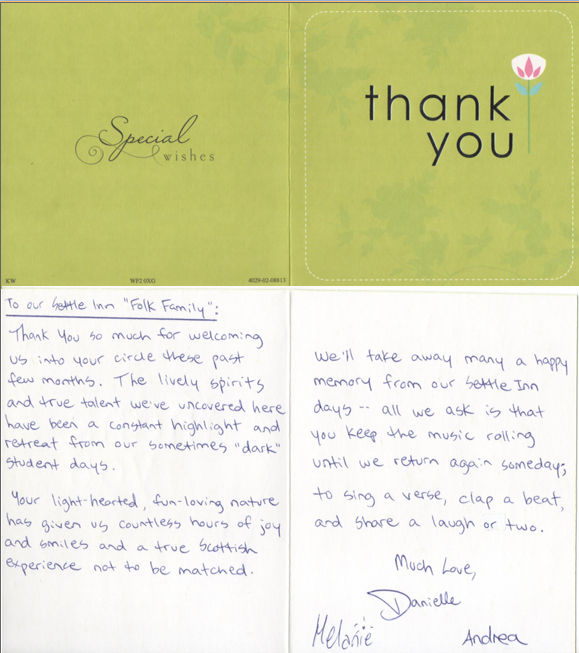 Special
wishes
thank
you
KW
WF2 0XG
4029-02-08813
To our Settle Inn "Folk Family":
Thank You so much for welcoming
us into your circle these past
few months. The lively spirits
and true talent we've uncovered here
have been a constant highlight and
retreat from our sometimes "dark"
student days.
Your light-hearted, fun-loving nature
has given us countless hours of joy
and smiles and a true Scottish
experience not to be matched.
We'll take away many a happy
memory from our Settle Inn
days -- all we ask is that
you keep the music rolling
until we return again someday;
to sing a verse, clap a beat,
and share a laugh or two.
Much Love,
Danielle
Melanie
Andrea